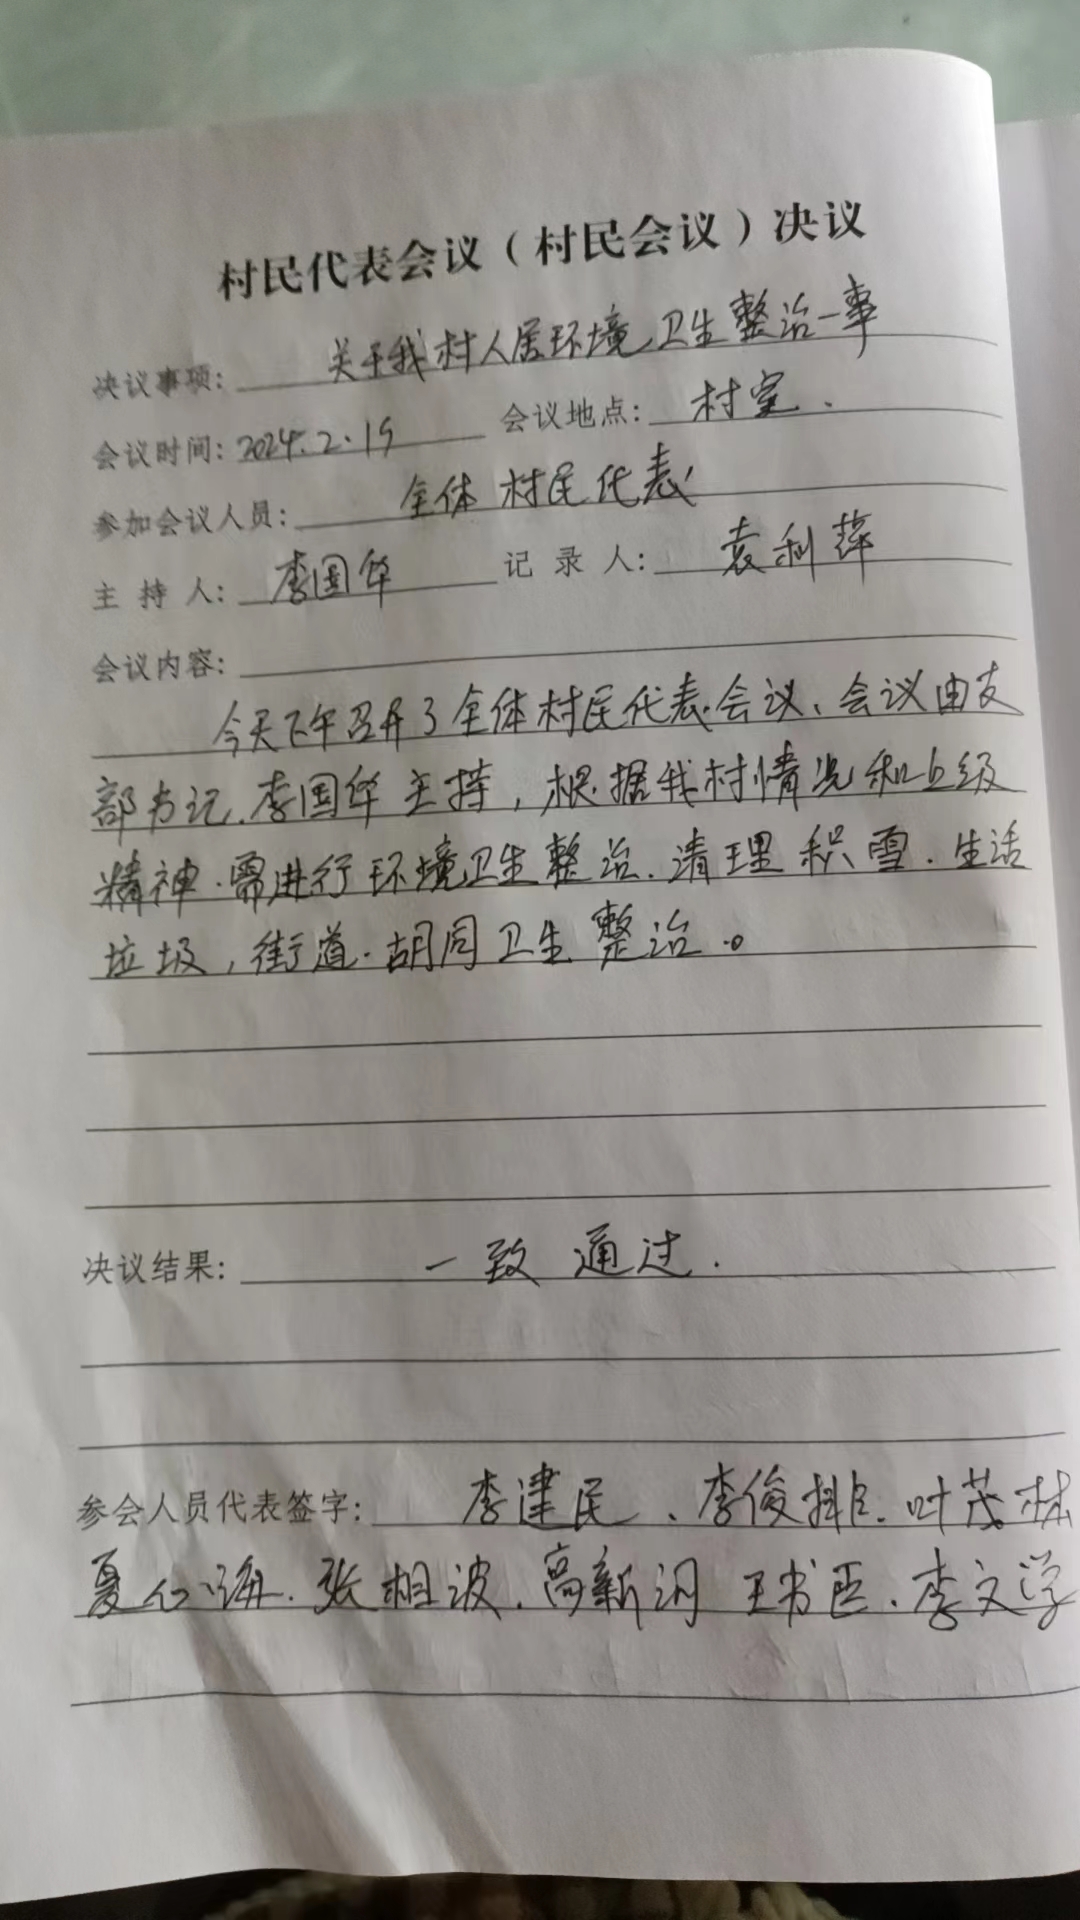 村民代表会议（村民会议）决议
决议事项：关于我村人居环境卫生整治一事
会议时间：2024.2.19 会议地点：村室.
参加会议人员：全体村民代表
主持人：李国华 记录人：袁利萍
会议内容：
今天下午召开了全体村民代表会议、会议由支
部书记.李国华主持，根据我村情况和上级
精神.需进行环境卫生整治.清理积雪.生活
垃圾，街道.胡同卫生整治.。
决议结果：一致通过.
参会人员代表签字：李建民、李俊.叶茂林
夏心海.张相波.高新润 王书臣.李文学